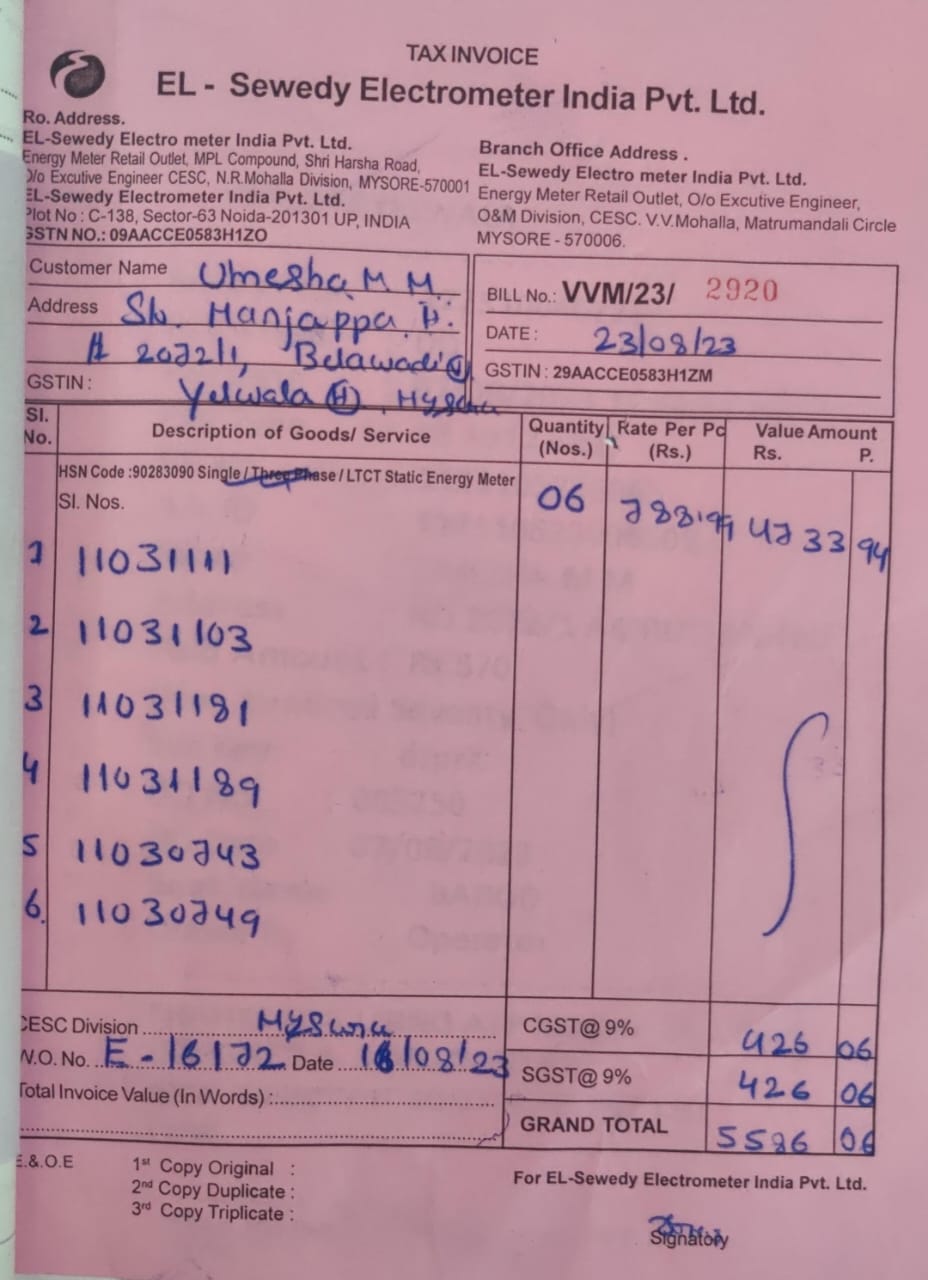 TAX INVOICE
EL - Sewedy Electrometer India Pvt. Ltd.
Ro. Address.
EL-Sewedy Electro meter India Pvt. Ltd.
Energy Meter Retail Outlet, MPL Compound, Shri Harsha Road,
O/o Excutive Engineer CESC, N.R.Mohalla Division, MYSORE-570001
EL-Sewedy Electrometer India Pvt. Ltd.
Plot No : C-138, Sector-63 Noida-201301 UP, INDIA
GSTN NO.: 09AACCE0583H1ZO
Branch Office Address .
EL-Sewedy Electro meter India Pvt. Ltd.
Energy Meter Retail Outlet, O/o Excutive Engineer,
O&M Division, CESC. V.V.Mohalla, Matrumandali Circle
MYSORE - 570006.
Customer Name Umesha M M.
Address S/o. Manjappa. D.
# 2072/1, Belawadi (V)
GSTIN : Yelwala (H), Mysuru
BILL No.: VVM/23/ 2920
DATE : 23/08/23
GSTIN : 29AACCE0583H1ZM
Sl. No. Description of Goods/ Service Quantity (Nos.) Rate Per Pc (Rs.) Value Amount Rs. P.
HSN Code :90283090 Single / Three Phase / LTCT Static Energy Meter 06 788.99 4733 94
Sl. Nos.
1 11031111
2 11031103
3 11031181
4 11031189
5 11030743
6. 11030749
CESC Division Mysuru
W.O. No. E-16172 Date 16/08/23
Total Invoice Value (In Words) :
CGST@ 9% 426 06
SGST@ 9% 426 06
GRAND TOTAL 5586 06
E.&.O.E
1st Copy Original :
2nd Copy Duplicate :
3rd Copy Triplicate :
For EL-Sewedy Electrometer India Pvt. Ltd.
Signatory